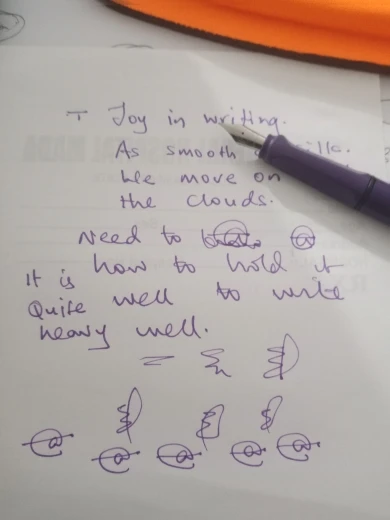 Joy in writing.
As smooth
We move on
the clouds.
Need to
how to hold it
It is
Quite well to write
heavy well.